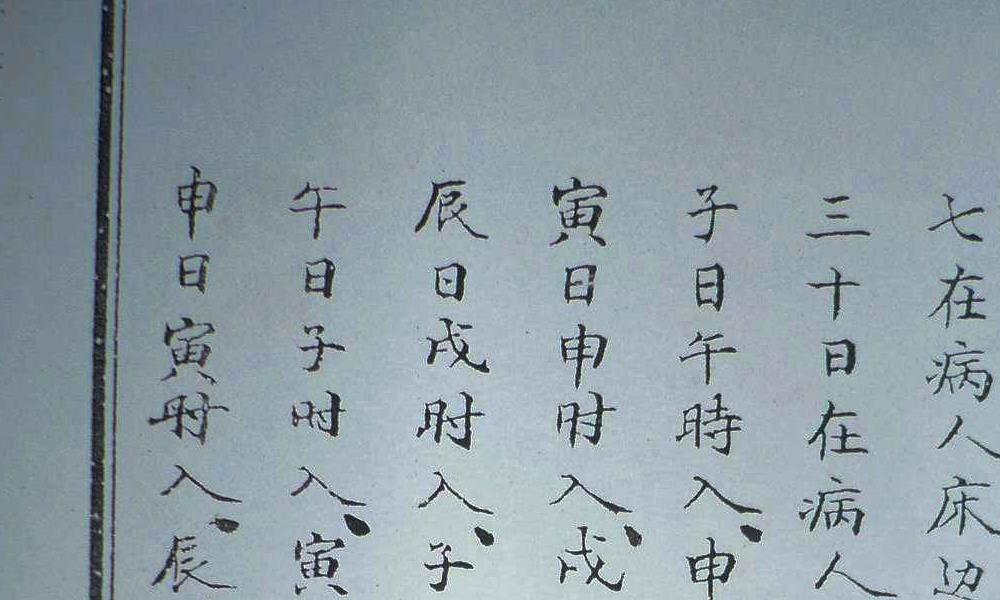 七在病人床边
三十日在病人
子日午時入、申
寅日申时入、戌
辰日戌时入、子
午日子时入、寅
申日寅时入、辰